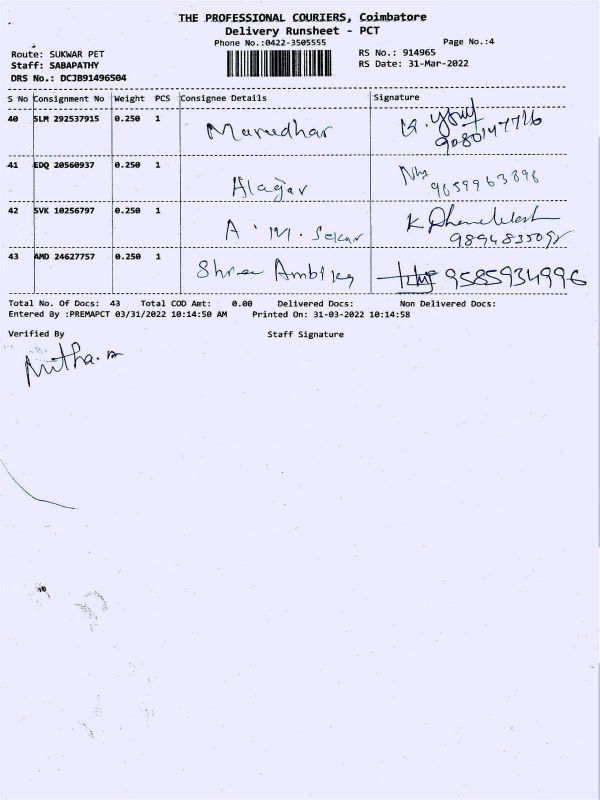 THE PROFESSIONAL COURIERS, Coimbatore
Delivery Runsheet - PCT
Phone No.:0422-3505555 Page No.:4
Route: SUKWAR PET RS No.: 914965
Staff: SABAPATHY RS Date: 31-Mar-2022
DRS No.: DCJB91496504
S No Consignment No Weight PCS Consignee Details Signature
40 SLM 292537915 0.250 1 Marudhar
9080147716
41 EDQ 20560937 0.250 1 Alagar
9659963896
42 SVK 10256797 0.250 1 A. M. Sekar
9894835098
43 AMD 24627757 0.250 1 Shree Ambika 9585934996
Total No. Of Docs: 43 Total COD Amt: 0.00 Delivered Docs: Non Delivered Docs:
Entered By :PREMAPCT 03/31/2022 10:14:50 AM Printed On: 31-03-2022 10:14:58
Verified By Staff Signature